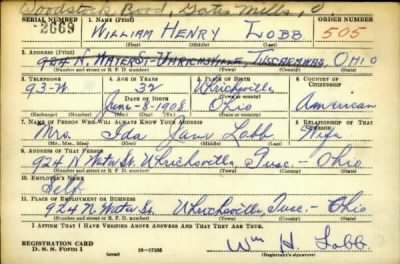 Woodstock Bend, Gates Mills, O.
SERIAL NUMBER 1. NAME (Print) ORDER NUMBER
2669 WILLIAM HENRY LOBB 505
(First) (Middle) (Last)
2. ADDRESS (Print)
924 N. WATER ST. UHRICHSVILLE, TUSCARAWAS, OHIO
(Number and street or R. F. D. number) (Town) (County) (State)
3. TELEPHONE 4. AGE IN YEARS 5. PLACE OF BIRTH 6. COUNTRY OF CITIZENSHIP
93-W 32 Uhrichsville
DATE OF BIRTH
June-8-1908 Ohio American
(Exchange) (Number) (Mo.) (Day) (Yr.) (State or country)
7. NAME OF PERSON WHO WILL ALWAYS KNOW YOUR ADDRESS 8. RELATIONSHIP OF THAT PERSON
Mrs. Ida Jane Lobb Wife
(Mr., Mrs., Miss) (First) (Middle) (Last)
9. ADDRESS OF THAT PERSON
924 N. Water St. Uhrichsville, Tusc.- Ohio
(Number and street or R. F. D. number) (Town) (County) (State)
10. EMPLOYER'S NAME
Self
11. PLACE OF EMPLOYMENT OR BUSINESS
924 N. Water St. Uhrichsville, Tusc.- Ohio
(Number and street or R. F. D. number) (Town) (County) (State)
I AFFIRM THAT I HAVE VERIFIED ABOVE ANSWERS AND THAT THEY ARE TRUE.
REGISTRATION CARD
D. S. S. Form 1 16-17105 Wm H. Lobb
(Registrant's signature)